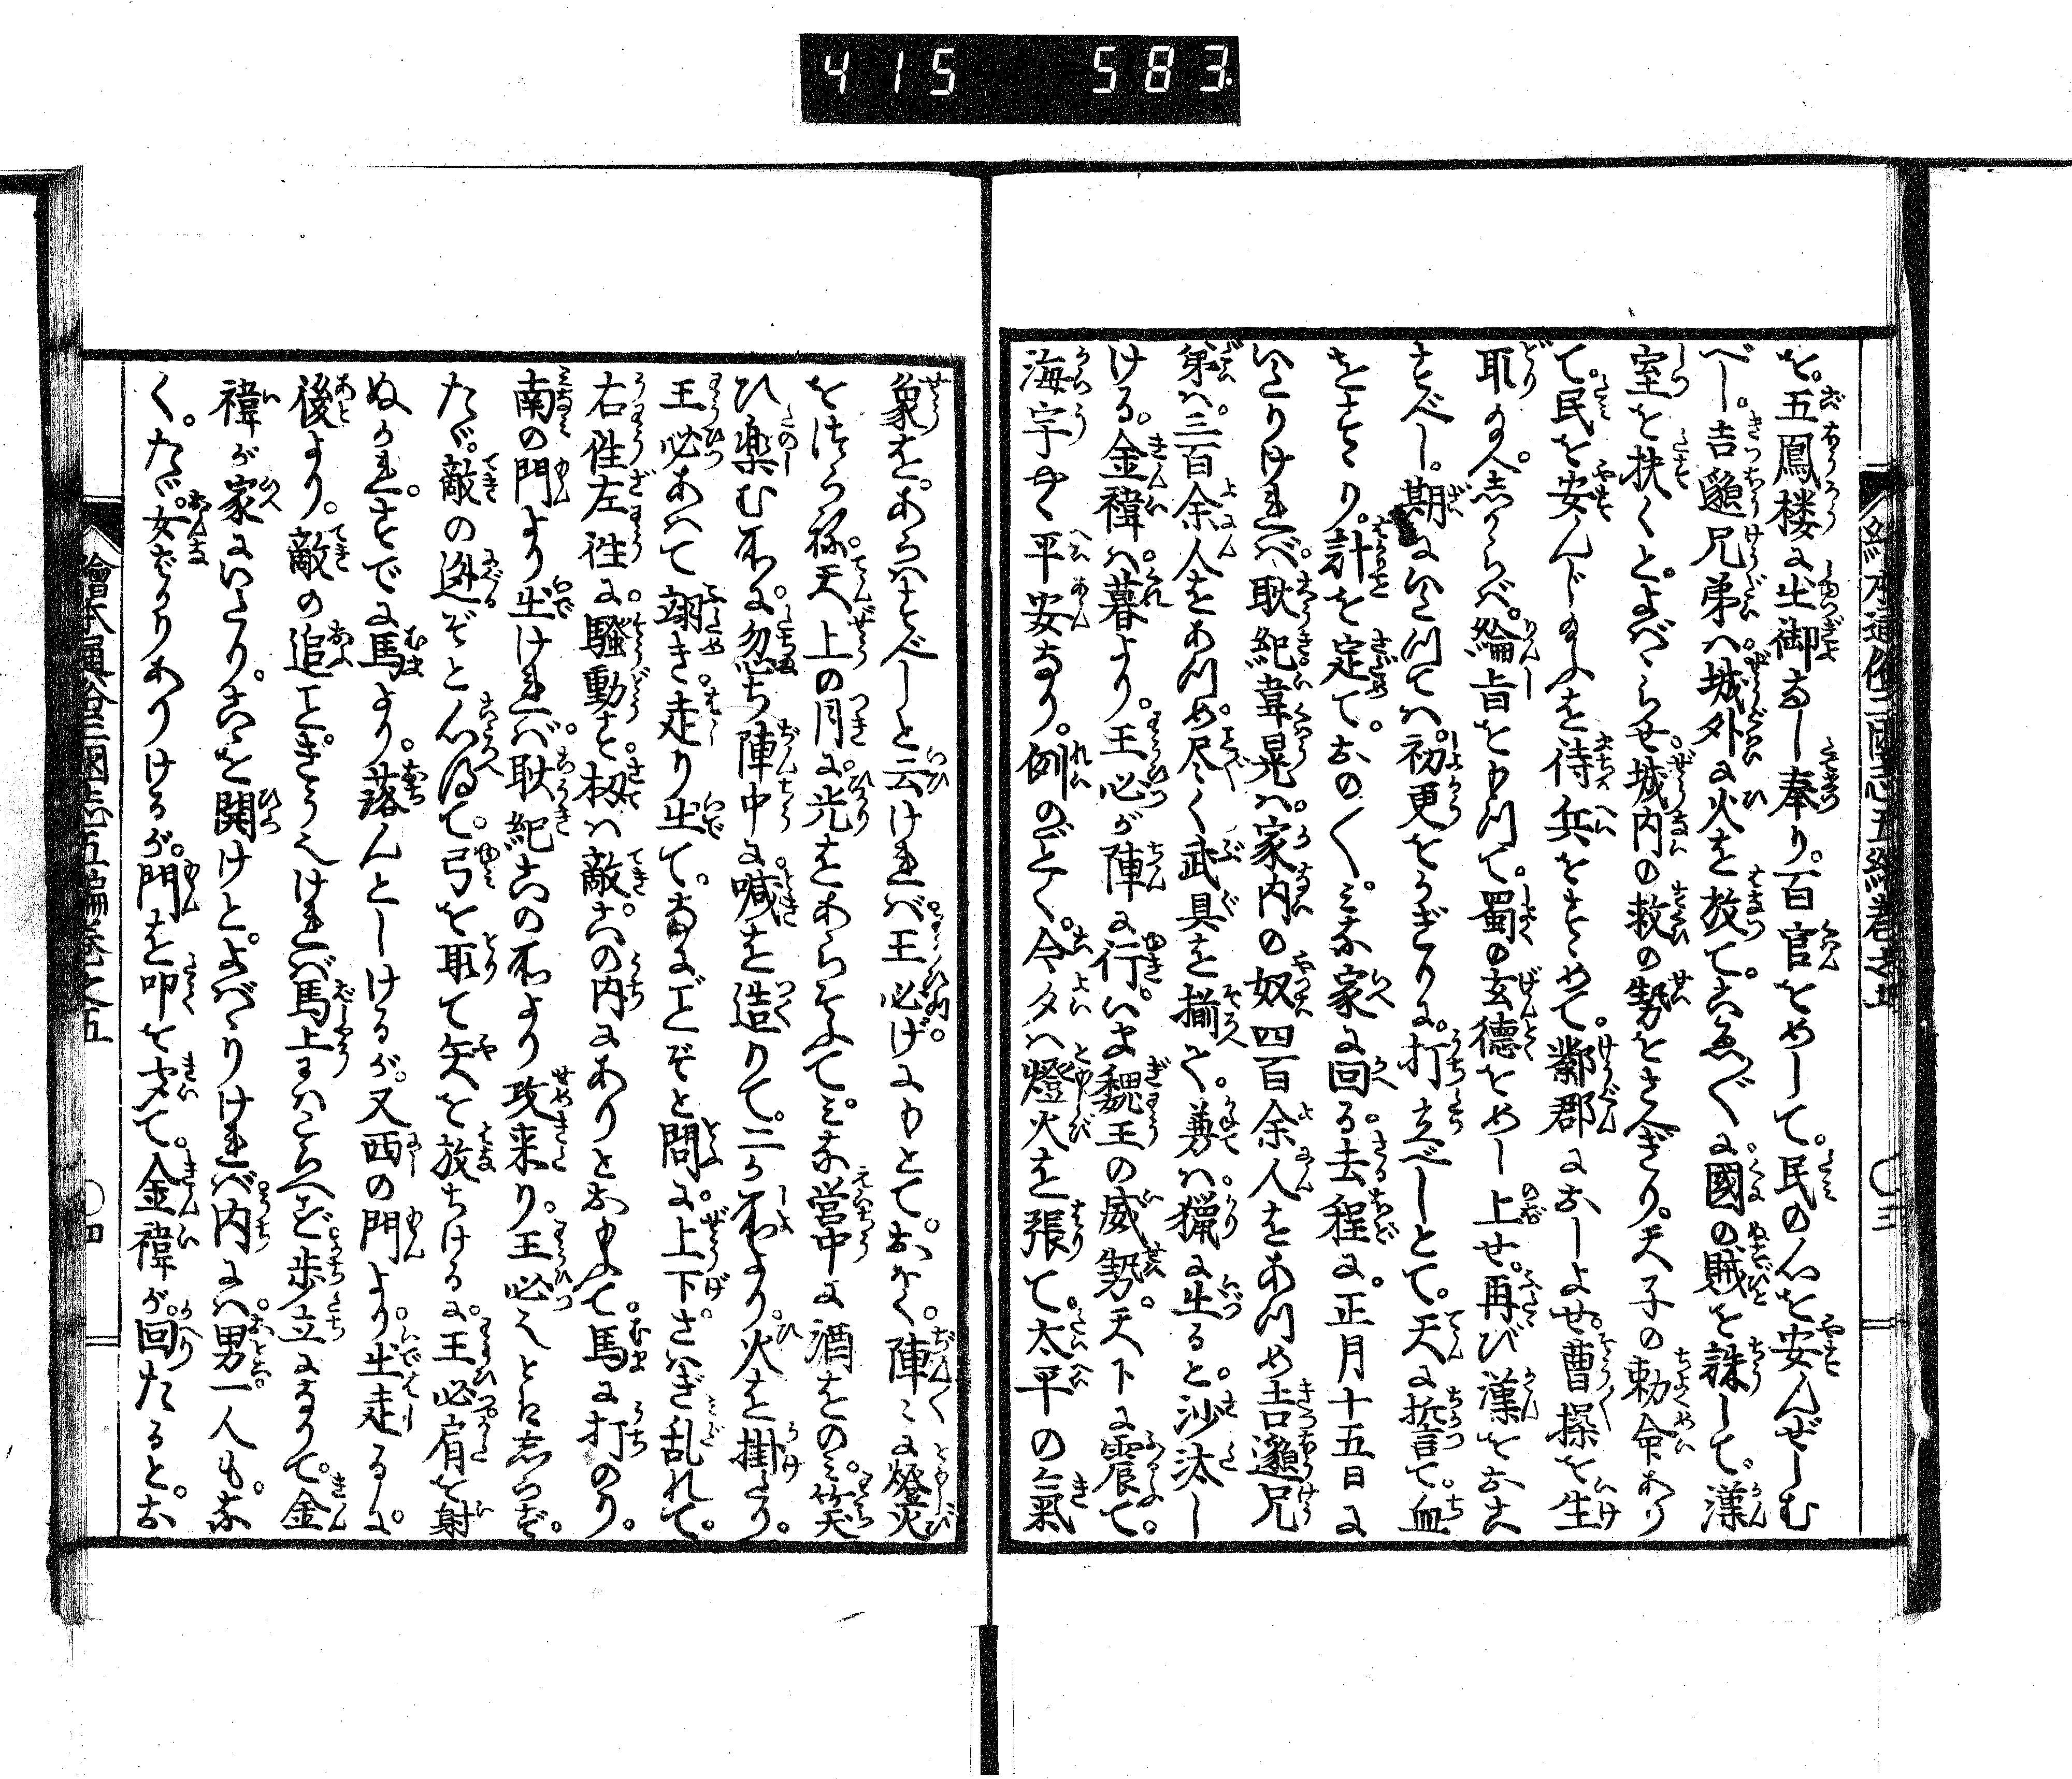 415 583
を。五鳳楼に出御なし奉り。百官をめして。民の心を安んぜしむ
べし。吉邈兄弟ハ城外に火を放て。こゑ〴〵に國の賊を誅して。漢
室を扶くと。よバゝらせ。城内の救の勢をさへぎり。天子の勅命あり
て。民を安んじ給ふを待。兵をすゝめて。鄴郡におしよせ。曹操を生
取給ハ。しからバ。綸旨を申て。蜀の玄德をめし上せ。再び漢をおこ
すべし。期にいたつてハ。初更をかぎりに。打立べしとて。天に誓て。血
をすゝり。計を定て。おの〳〵。みな家に回る。去程に。正月十五日に
いたりけれバ。耿紀韋晃ハ。家内の奴四百余人をあつめ吉邈兄
弟ハ。三百余人をあつめ。尽く武具を揃て。兼ハ。獵に出ると。沙汰し
ける。金褘ハ。暮より。王必が陣に行。いま魏王の威勢。天下に震て。
海宇やゝ平安なり。例のごとく。今夕ハ燈火を張て。太平の氣
象を。あらハすべしと云けれバ王必げにもとて。おほく。陣〻に燈火
をつらね。天上の月に。光をあらそふて。みな営中に酒をのみ。笑
ひ楽む所に。忽ち陣中に喊を造りて。二ヶ所より。火を掛たり。
王必あハて翊き。走り出て。なにごとぞと問に。上下さハぎ乱れて。
右徃左徃に。騒動す。扨ハ敵。この内にありとおもふて。馬に打のり。
南の門より出けれバ。耿紀この所より攻来り。王必としらず。
たゞ。敵の迯ぞと心得て。弓を取て矢を放ちけるに。王必肩を射
ぬかれ。すでに馬より。落んとしけるが。又西の門より。出走るに。
後より。敵の追こと。ぎうしけれバ馬上にハこらへず歩立になりて。金
褘が家にいたり。こゝを開けと。よバゝりけれバ。内にハ。男一人も。な
く。たゞ。女ばかりありけるが。門を叩を聞て。金褘が。回たると。お
繪本通俗三國志五編巻之五
三
繪本通俗三國志五編巻之五
四